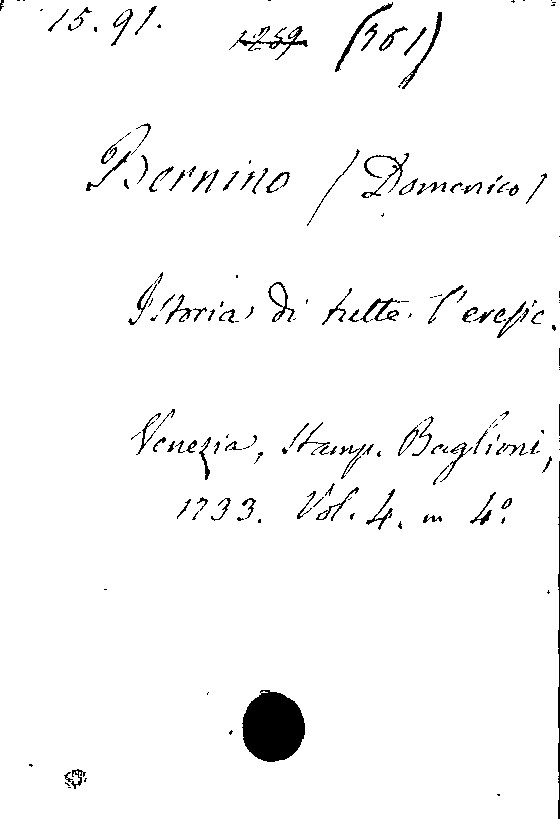 15.91. 1259 (361)
Bernino (Domenico)
Istoria di tutte l'eresie.
Venezia, Stamp. Baglioni,
1733. Vol. 4. in 4º